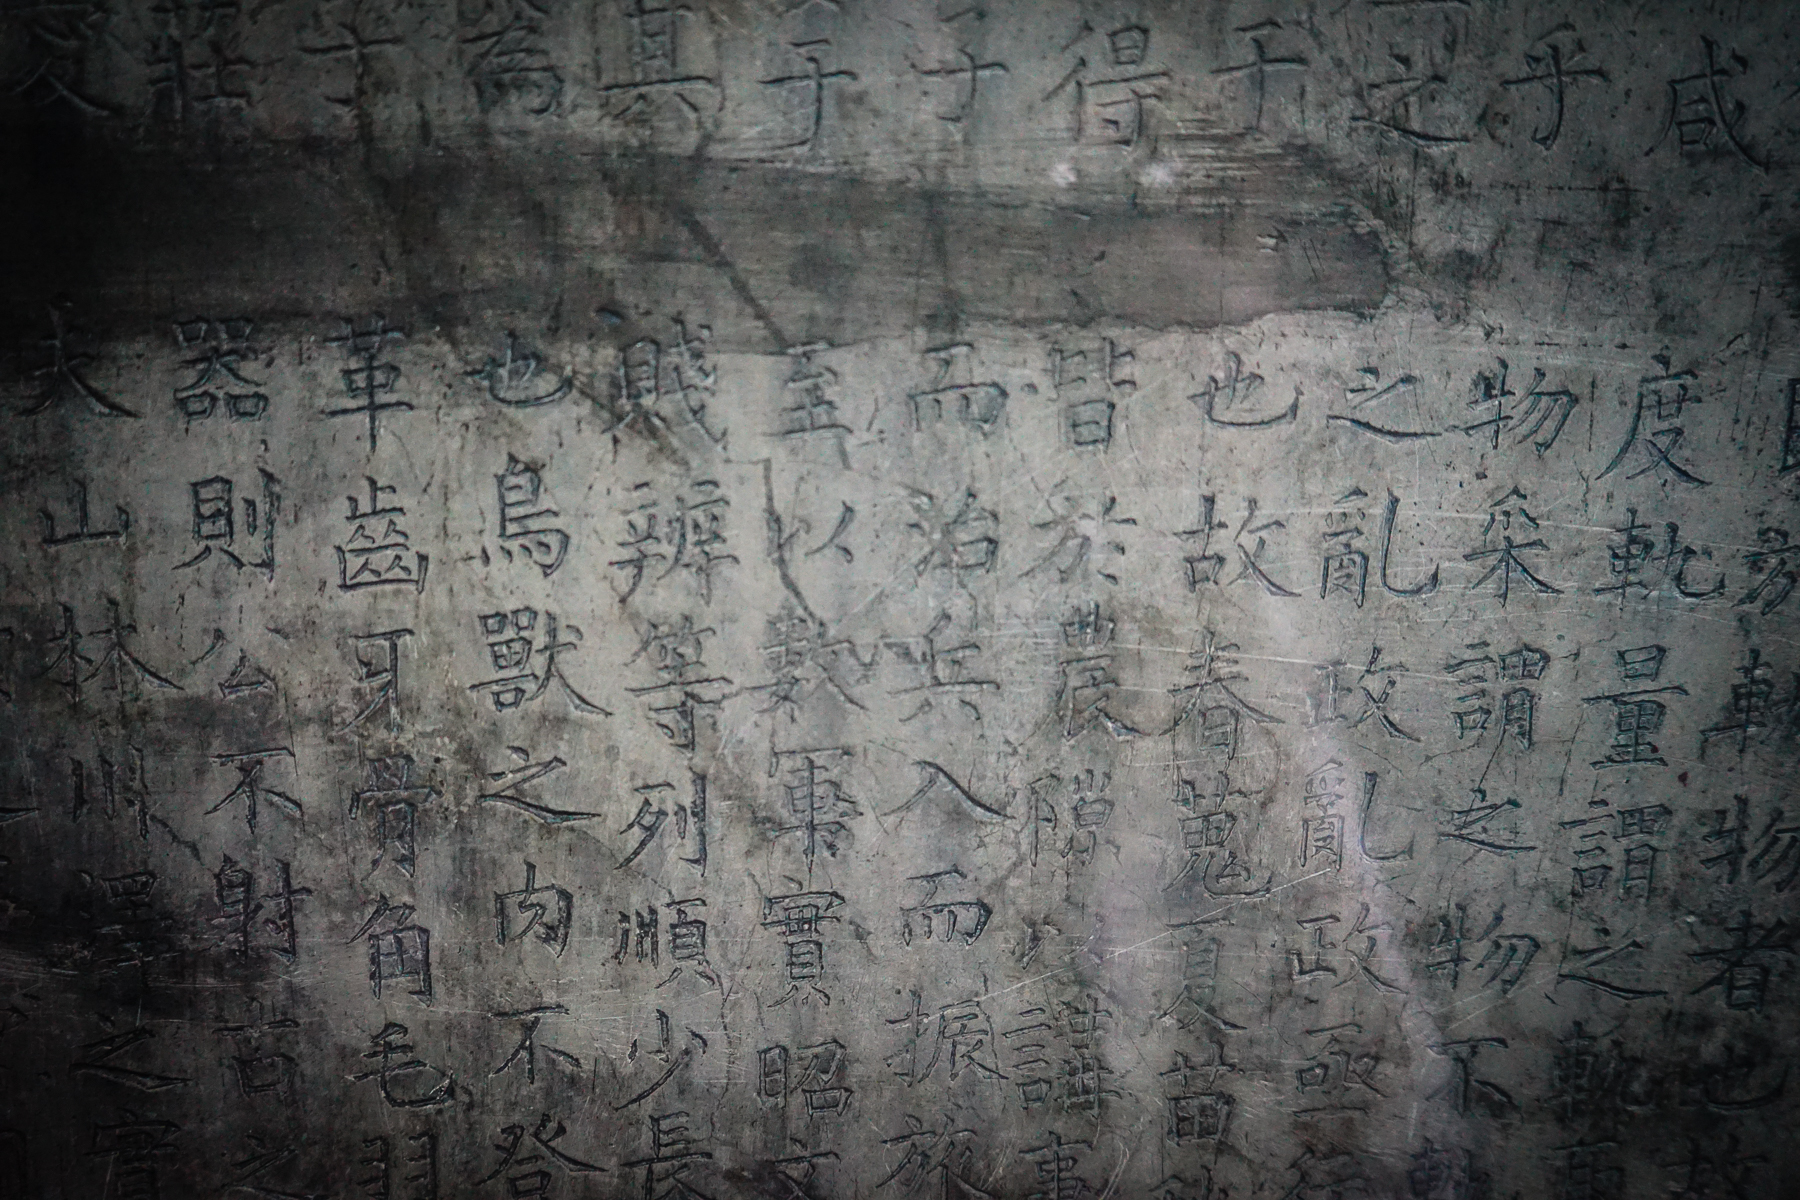 咸
乎
之
于
得
子
于
其
為
十
莊
於軌物者也故
度軌量謂之軌
物采謂之物不軌
之亂政亂政亟行
也故春蒐夏苗
皆於農隙以講事
而治兵入而振旅
至以數軍實昭文
賤辨等列順少長
也鳥獸之肉不登
革齒牙骨角毛羽
器則公不射古之
夫山林川澤之實